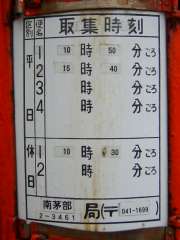 区別 便名 取集時刻
平日 1 10時50分ごろ
2 15時40分ごろ
3 時 分ごろ
4 時 分ごろ
休日 1 10時30分ごろ
2 時 分ごろ
南茅部 局(〒041-1699)
2-3461